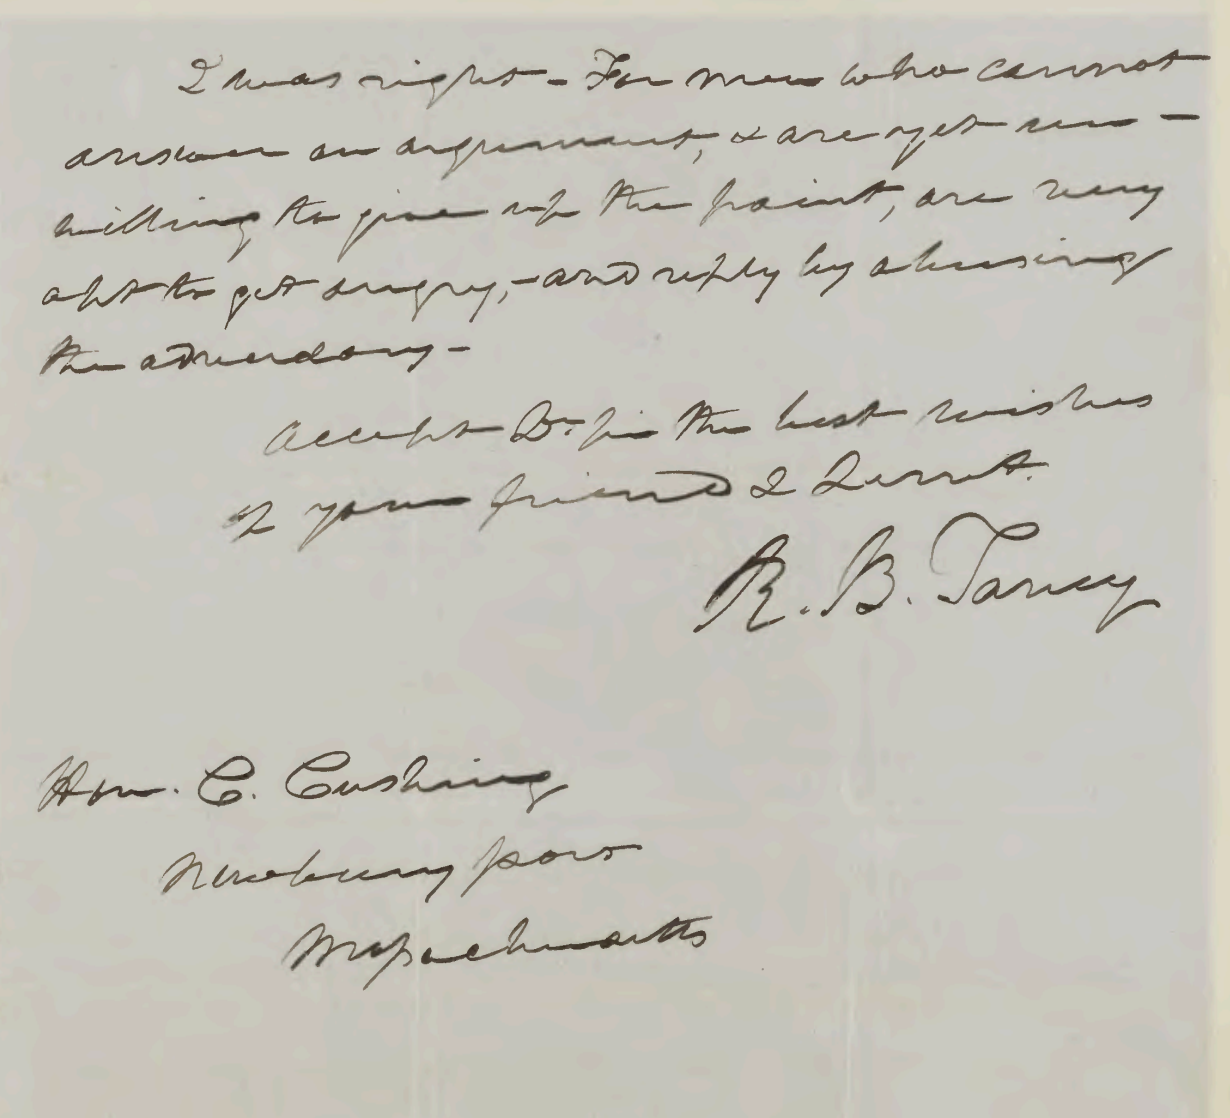 I was right – For men who cannot
answer an argument, & are yet un-
willing to give up the point, are very
apt to get angry, – and reply by abusing
the adversary –
Accept Dr Sir the best wishes
of your friend & Servt.
R. B. Taney
Hon. C. Cushing
Newburyport
Massachusetts